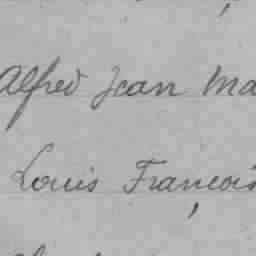 Alfred Jean Ma
Louis François